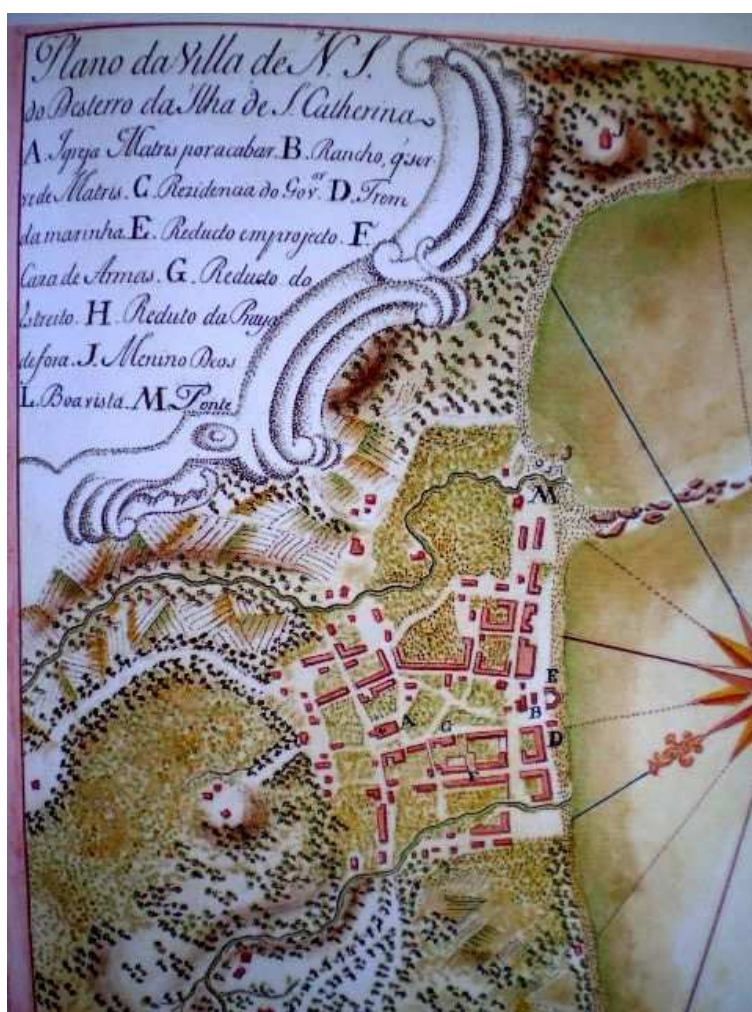 Plano da Villa de N. S.
do Desterro da Ilha de S. Catherina
A. Igreja Matris por acabar. B. Rancho, q̃ ser
ve de Matris. C. Rezidencia do Gov.or D. Trem
da marinha. E. Reducto em projecto. F.
Caza de Armas. G. Reducto do
Estreito. H. Reduto da Praya
de fora. J. Menino Deos
L. Boavista. M. Ponte
J
M
E
B
A
D